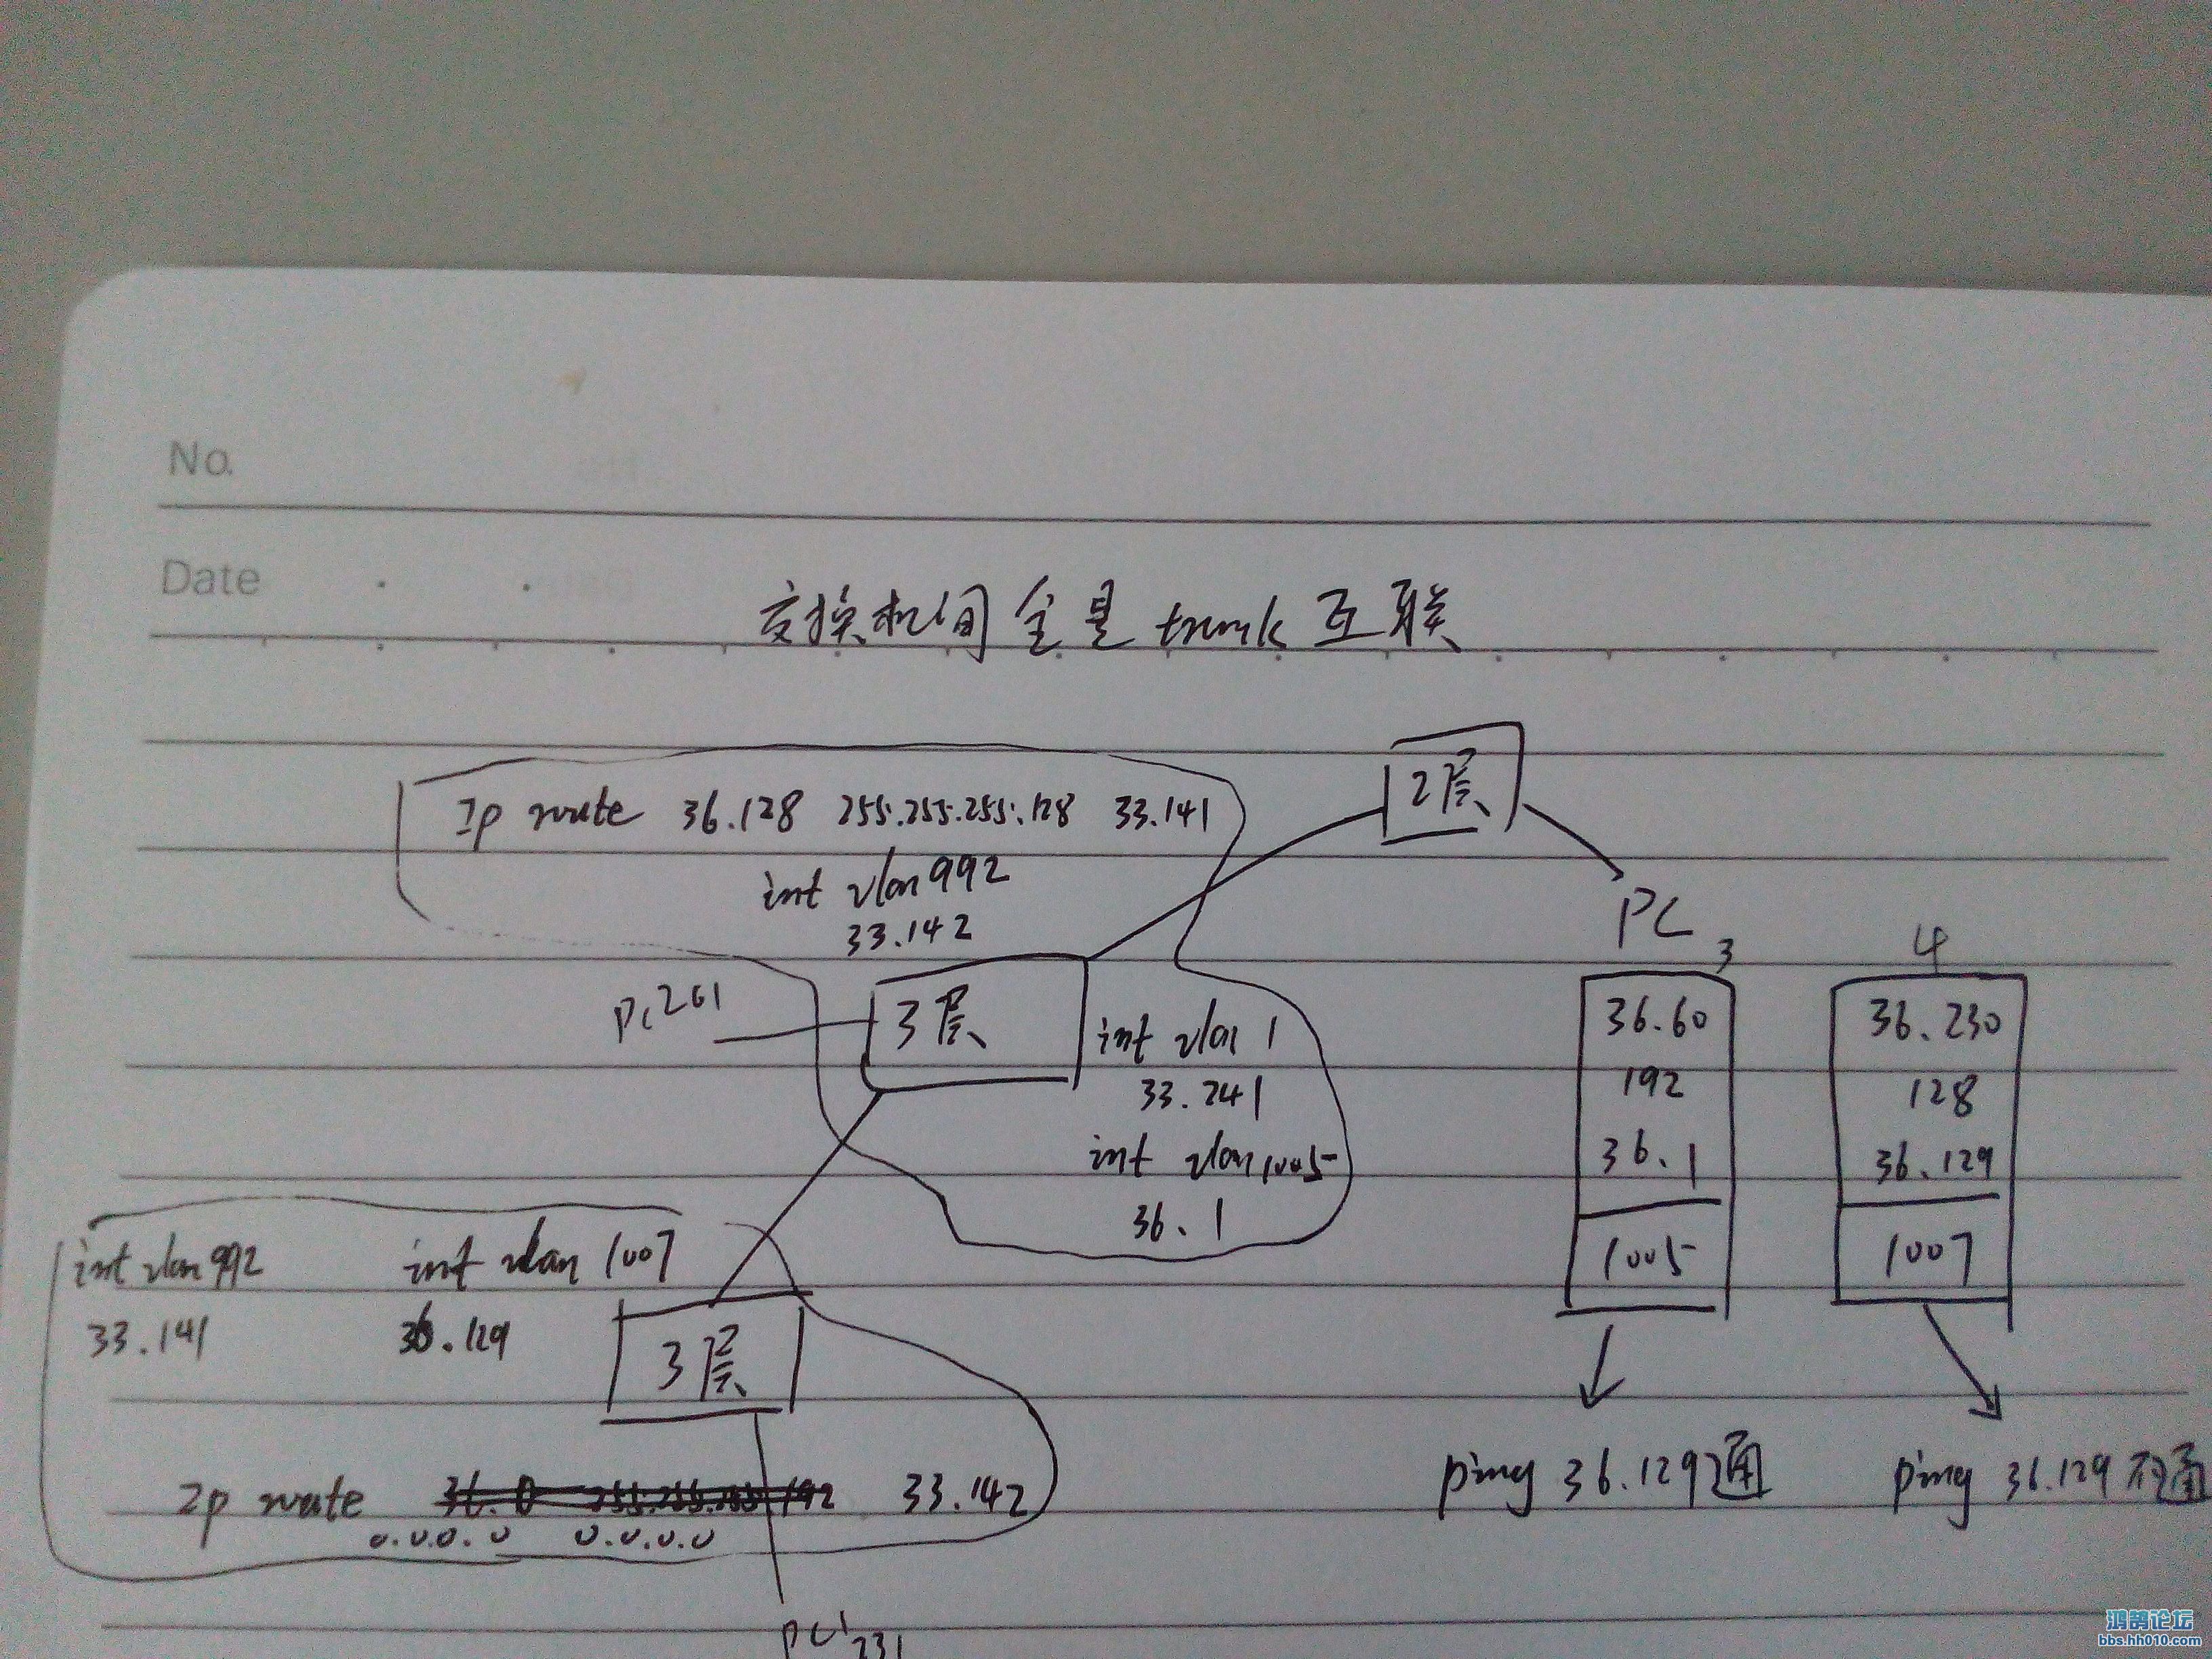 No.
Date
交换机间全是trunk互联
2层
Ip route 36.128 255.255.255.128 33.141
int vlan 992
33.142
PC 3 4
3层
int vlan 1
33.241
int vlan 1005
36.1
36.60
192
36.1
1005
36.230
128
36.129
1007
int vlan 992 int vlan 1007
33.141 36.129
3层
ping 36.129 通 ping 36.129 不通
Ip route 36.0 255.255.255.192 33.142
0.0.0.0 0.0.0.0
PC1 231
鸿鹄论坛
bbs.hh010.com